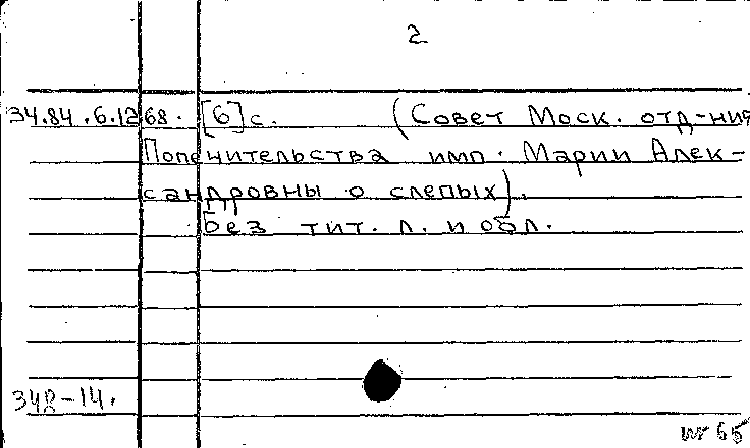 2
34.84.6.1268. [6]с. (Совет Моск. отд-ния
Попечительства имп. Марии Алек-
сандровны о слепых).
Без тит. л. и обл.
348-14.
65